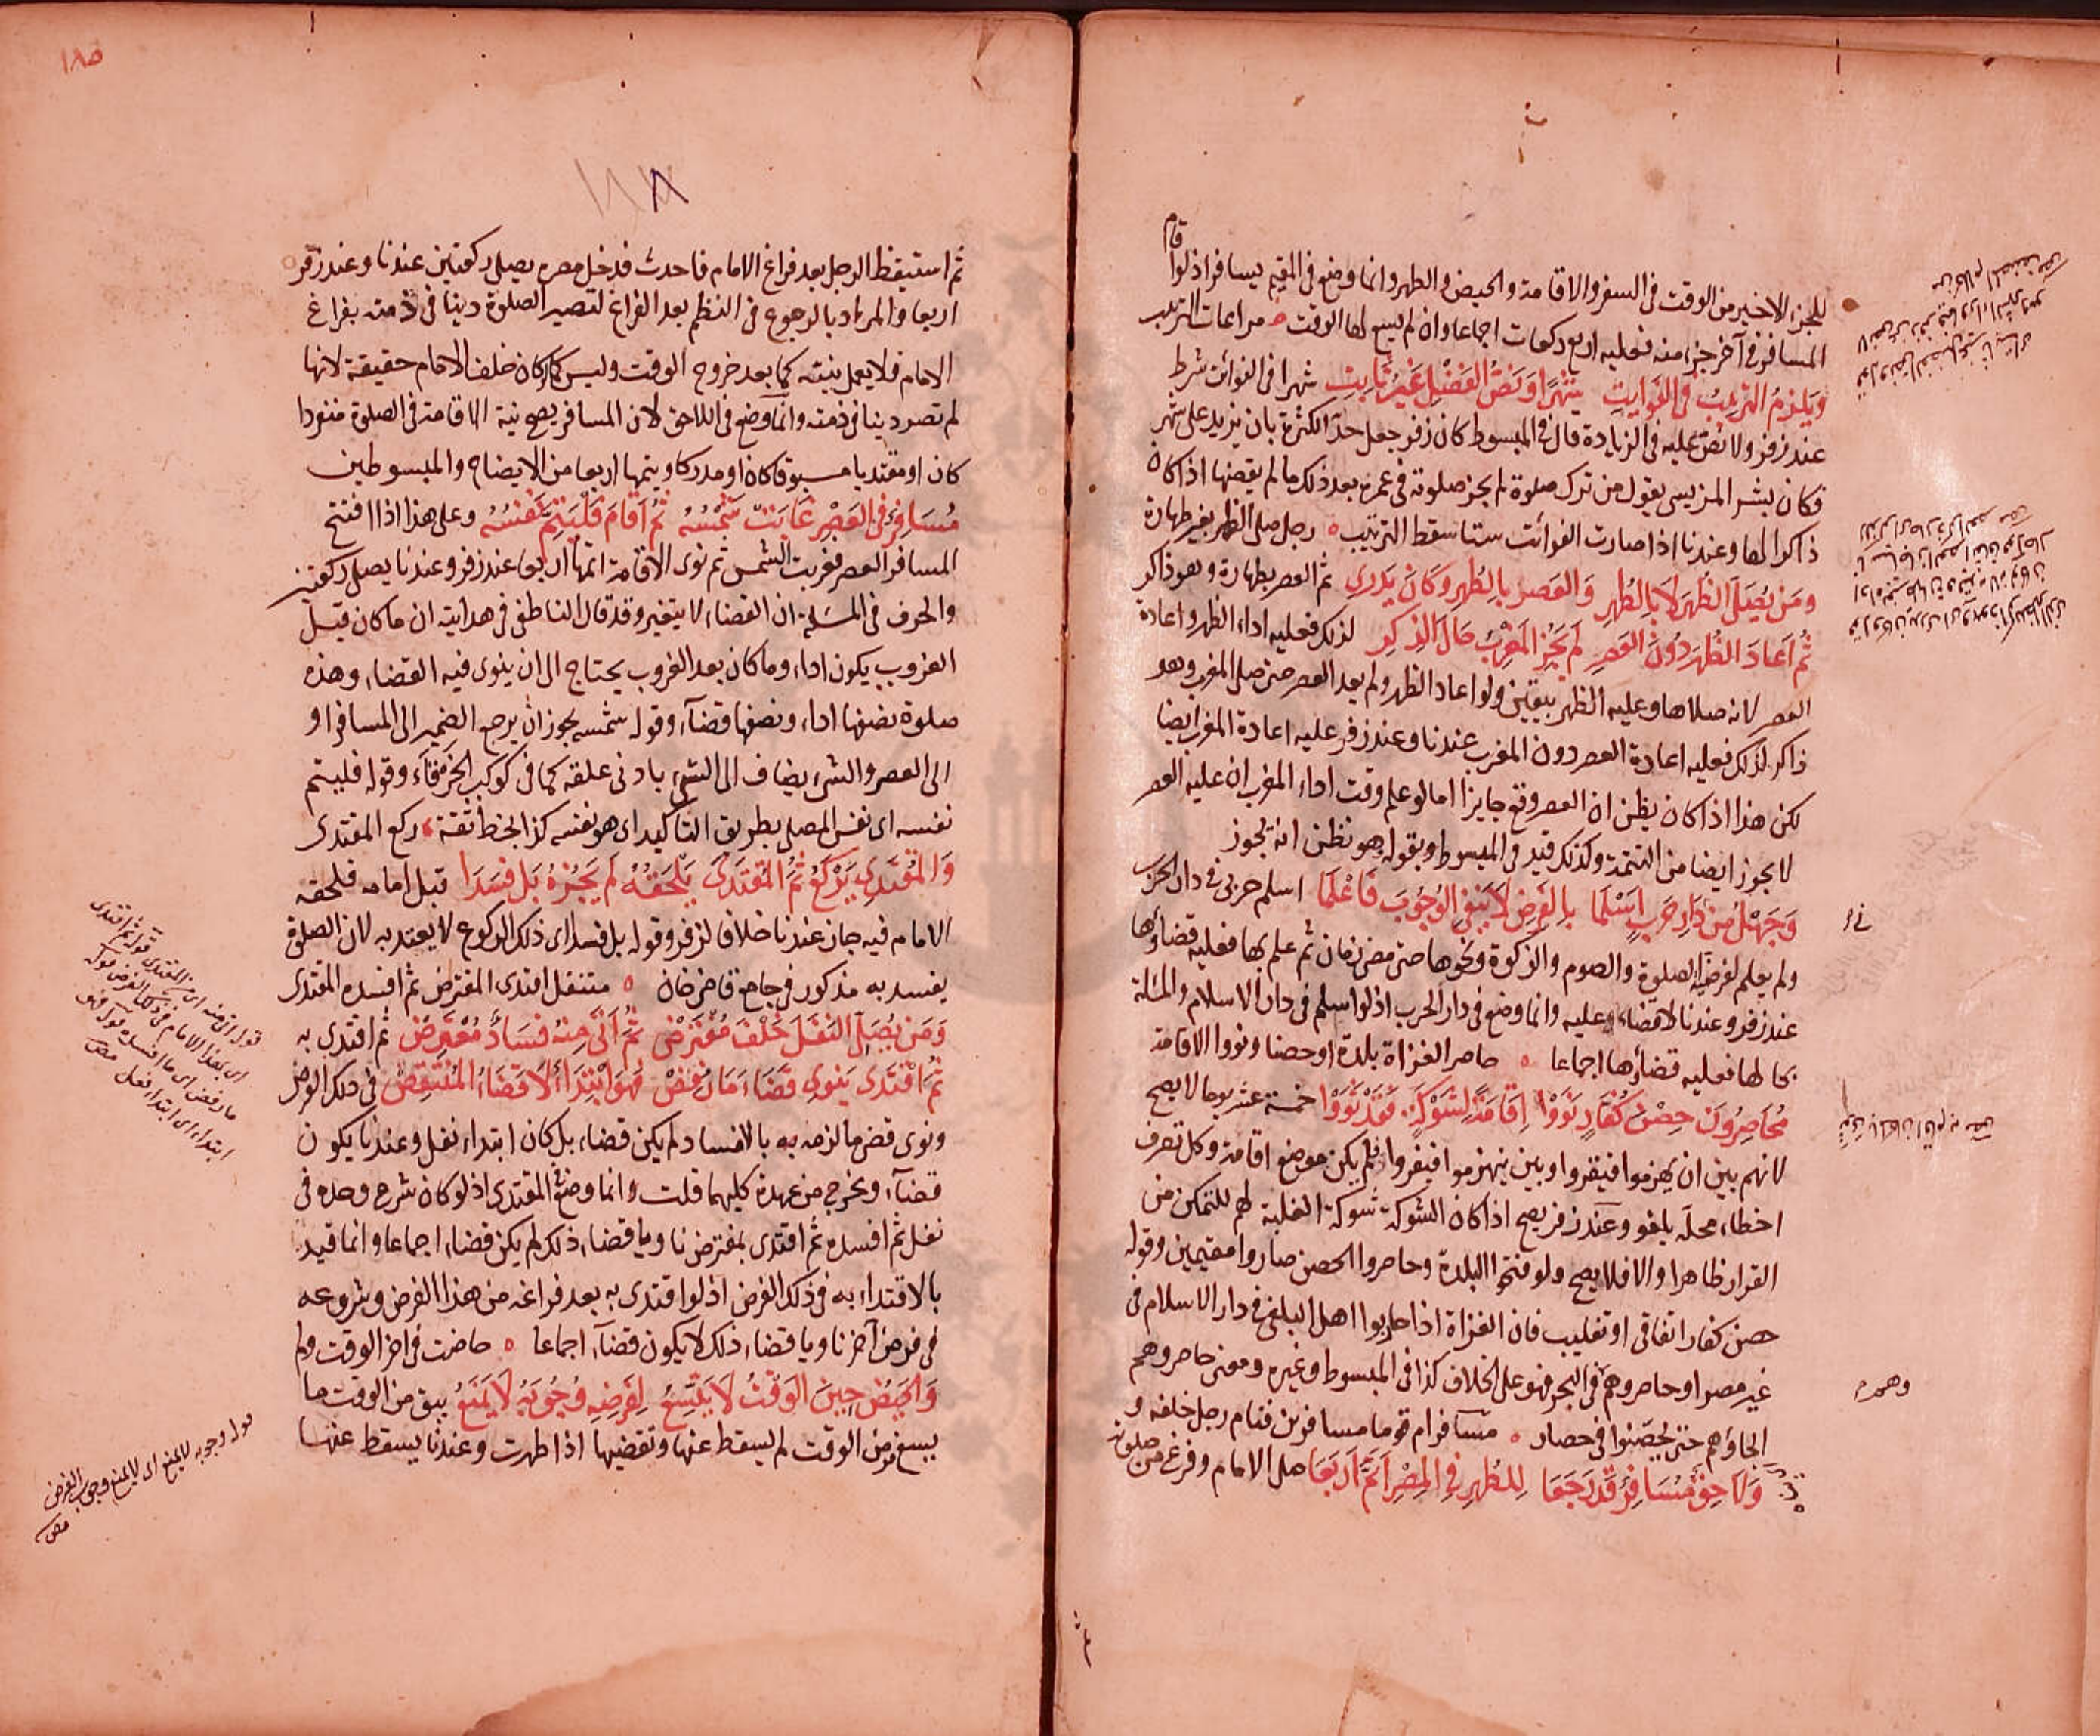 قام
للجزء الاخير من الوقت فى السفر والاقامة والحيض والطهر وانما وضع فى المقيم يسافر اذ لو
المسافر فى آخر جزء منه فعليه اربع ركعات اجماعا وان لم يسع لها الوقت ه مراعات الترتيب
ويلزم الترتيب فى الفوايت شهرا ونص الفضل غير ثابت شهرا فى الفوائت شرط
عند زفر ولا نص عليه فى الزيادة قال فى المبسوط كان زفر جعل حد الكثرة بان يزيد على شهر
فكان بشر المريسى يقول من ترك صلوة لم يجز صلوته فى عمره بعد ذلك ما لم يقضها اذا كان
ذاكرا لها وعندنا اذا صارت الفوائت ستا سقط الترتيب ه رجل صلى الظهر بغير طهارة
ومن يصلى الظهر لا بالطهر والعصر بالطهر وكان يدرى ثم العصر بطهارة وهو ذاكر
ثم اعاد الظهر دون العصر لم يجز المغرب حال الذكر لذلك فعليه اداء الظهر واعادة
العصر لانه صلاها وعليه الظهر بيقين ولو اعاد الظهر ولم يعد العصر حتى صلى المغرب وهو
ذاكر لذلك فعليه اعادة العصر دون المغرب عندنا وعند زفر عليه اعادة المغرب ايضا
لكن هذا اذا كان يظن ان العصر وقع جايزا اما لو علم وقت اداء المغرب ان عليه العصر
لا يجوز ايضا من التتمة وكذلك قيد فى المبسوط وبقوله وهو نظن انه يجوز
وجهل من دار حرب اسلما بالفرض لا ينفى الوجوب فاعلما اسلم حربى فى دار الحرب
ولم يعلم لفرضية الصلوة والصوم والزكوة ونحوها حتى مضى زمان ثم علم بها فعليه قضاؤها
عند زفر وعندنا لا قضاء عليه وانما وضع فى دار الحرب اذ لو اسلم فى دار الاسلام والمسئلة
بحالها فعليه قضاؤها اجماعا ه حاصر الغزاة بلدة او حصنا ونووا الاقامة
محاصرون حصن كفار نووا اقامة لشوكة فقد ثووا خمسة عشر يوما لا يصح
لانهم بين ان يهزموا فيقروا وبين ينهزموا فيفروا فلم يكن موضع اقامة وكل تصرف
اخطاء محله يلغو وعند زفر يصح اذا كان الشوكة شوكة الغلبة لهم للتمكن من
القرار ظاهرا والا فلا يصح ولو فتحوا البلدة وحاصروا الحصن صاروا مقيمين وقوله
حصن كفار اتفاقى او تغليب فان الغزاة اذا حاربوا اهل البغى فى دار الاسلام فى
غير مصر او حاصروهم فى البحر فهو على الخلاف كذا فى المبسوط وغيره ومعنى حاصروهم
الجاؤهم حتى تحصنوا فى حصار ه مسافر ام قوما مسافرين فنام رجل خلفه و
ولاحق مسافر قد رجعا للظهر فى المصر اتم اربعا صلى الامام وفرغ من صلوته
وهمره
١٨٥
١٨٨
ثم استيقظ الرجل بعد فراغ الامام فاحدث فدخل مصره يصلى ركعتين عندنا وعند زفر
اربعا والمراد بالرجوع فى النظم بعد الفراغ لتصير الصلوة دينا فى ذمته بفراغ
الامام فلا يعمل بنيته كما بعد خروج الوقت وليس كما كان خلف الامام حقيقة لانها
لم تصر دينا فى ذمته وانما وضع فى اللاحق لان المسافر يصح نية الاقامة فى الصلوة منفردا
كان او مقتديا مسبوقا كان او مدركا ويتمها اربعا من الايضاح والمبسوطين
مسافر فى العصر غابت شمسه ثم اقام فليتم نفسه وعلى هذا اذا افتتح
المسافر العصر فغربت الشمس ثم نوى الاقامة اتمها اربعا عند زفر وعندنا يصلى ركعتين
والحرف فى المسئلة ان القضاء لا يتغير وقد قال الناطفى فى هدايته ان ما كان قبل
الغروب يكون اداء وما كان بعد الغروب يحتاج الى ان ينوى فيه القضاء وهذه
صلوة نصفها اداء ونصفها قضآء وقوله شمسه يجوز ان يرجع الضمير الى المسافر او
الى العصر والشئ يضاف الى الشئ بادنى علقة كما فى كوكب الخرقآء وقوله فليتم
نفسه اى نفس المصلى بطريق التاكيد اى هو نفسه كذا بخط ثقة ه ركع المقتدى
والمقتدى يركع ثم المقتدى يلحقه لم يجزه بل فسدا قبل امامه فلحقه
الامام فيه جاز عندنا خلافا لزفر وقوله بل فسد اى ذلك الركوع لا يعتد به لان الصلوة
يفسد به مذكور فى جامع قاضى خان ه متنفل اقتدى المفترض ثم افسده المقتدى
ومن يصلى النفل خلف مفترض ثم اتى منه فساد معترض ثم اقتدى به
ثم اقتدى ينوى قضاء ما رفض فهو ابتداء لا قضاء المنتقض فى ذلك الفرض
ونوى قضى ما لزمه به بالافساد لم يكن قضاء بل كان ابتداء نفل وعندنا يكون
قضآء ويخرج من عهدة كليهما قلت وانما وضع فى المقتدى اذ لو كان شرع وحده فى
نفل ثم افسده ثم اقتدى بمفترض ناويا قضاء ذلك لم يكن قضاء اجماعا وانما قيد
بالاقتداء به فى ذلك الفرض اذ لو اقتدى به بعد فراغه من هذا الفرض وشروعه
فى فرض آخر ناويا قضاء ذلك لا يكون قضآء اجماعا ه حاضت فى اخر الوقت ولم
والحيض حين الوقت لا يتسع لفرضه وجوبه لا يمنع يبق من الوقت ما
يسع فرض الوقت لم يسقط عنها وتقضيها اذا طهرت وعندنا يسقط عنها
قوله اتى منه اى من المقتدى قوله ثم اقتدى
اى بهذا الامام فى ذلك الفرض قوله
ما رفض اى ما افسده قوله فهو
ابتداء اى ابتداء نفل
قوله وجوبه لا يمنع اى لا يمنع وجوب الفرض